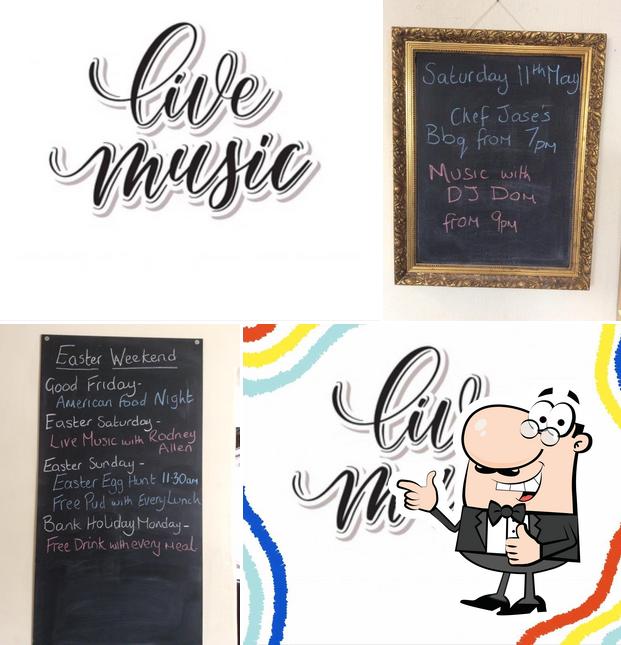 live
music
Saturday 11th May
Chef Jase's
Bbq from 7pm
Music with
DJ Dom
from 9pm
Easter Weekend
Good Friday-
American Food Night
Easter Saturday-
Live Music with Rodney
Allen
Easter Sunday-
Easter Egg Hunt 11:30am
Free Pud with Every Lunch
Bank Holiday Monday-
Free Drink with every Meal
liv
m